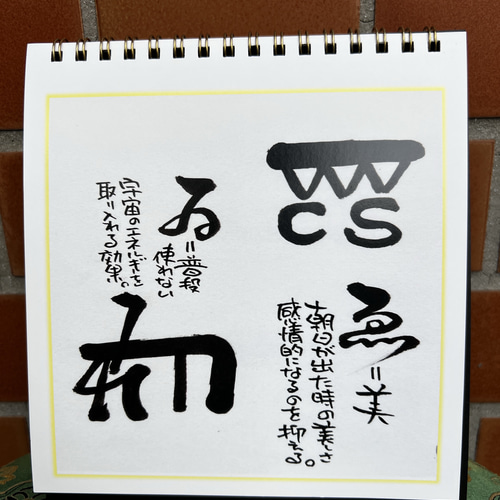 CS
ゑ=美
朝日が出た時の美しさ
感情的になるのを抑える。
ゐ=普段
使わない
宇宙のエネルギーを
取り入れる効果。